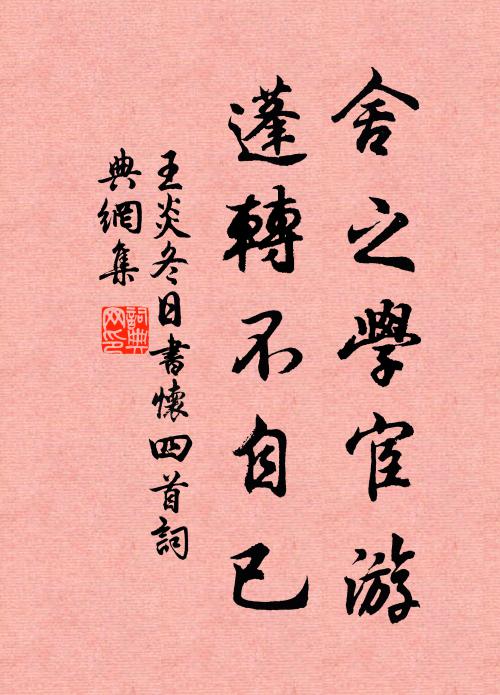 舍之學宦游
蓬轉不自已
王炎冬日書懷四首詞
典網集
詞典网印